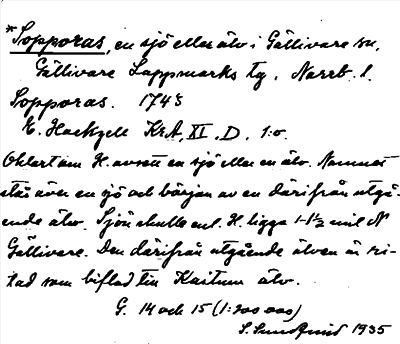 *Sopporas, en sjö eller älv i Gällivare sn,
Gällivare Lappmarks tg. Norrb. l.
Sopporas. 1745
E. Hackzell KrA, XI, D, 1:o.
Oklart om H. avsett en sjö eller en älv. Namnet
står över en sjö och början av en därifrån utgå-
ende älv. Sjön skulle enl. H. ligga 1-1½ mil N
Gällivare. Den därifrån utgående älven är ri-
tad som biflod till Kaitum älv.
G. 14 och 15 (1:200 000)
S. 1935